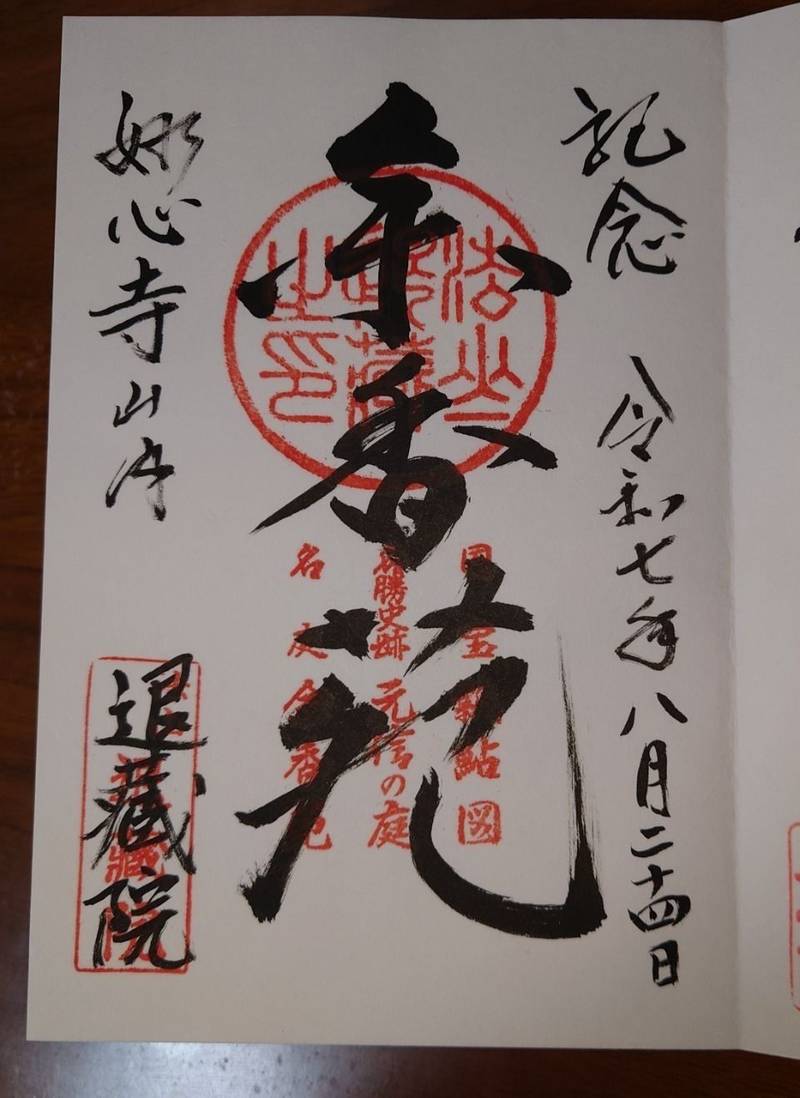 記念 令和七年八月二十四日
余香苑
法山
退藏
之印
国宝 瓢鮎図
名勝史跡 元信の庭
名庭 余香苑
妙心寺山内
退藏院